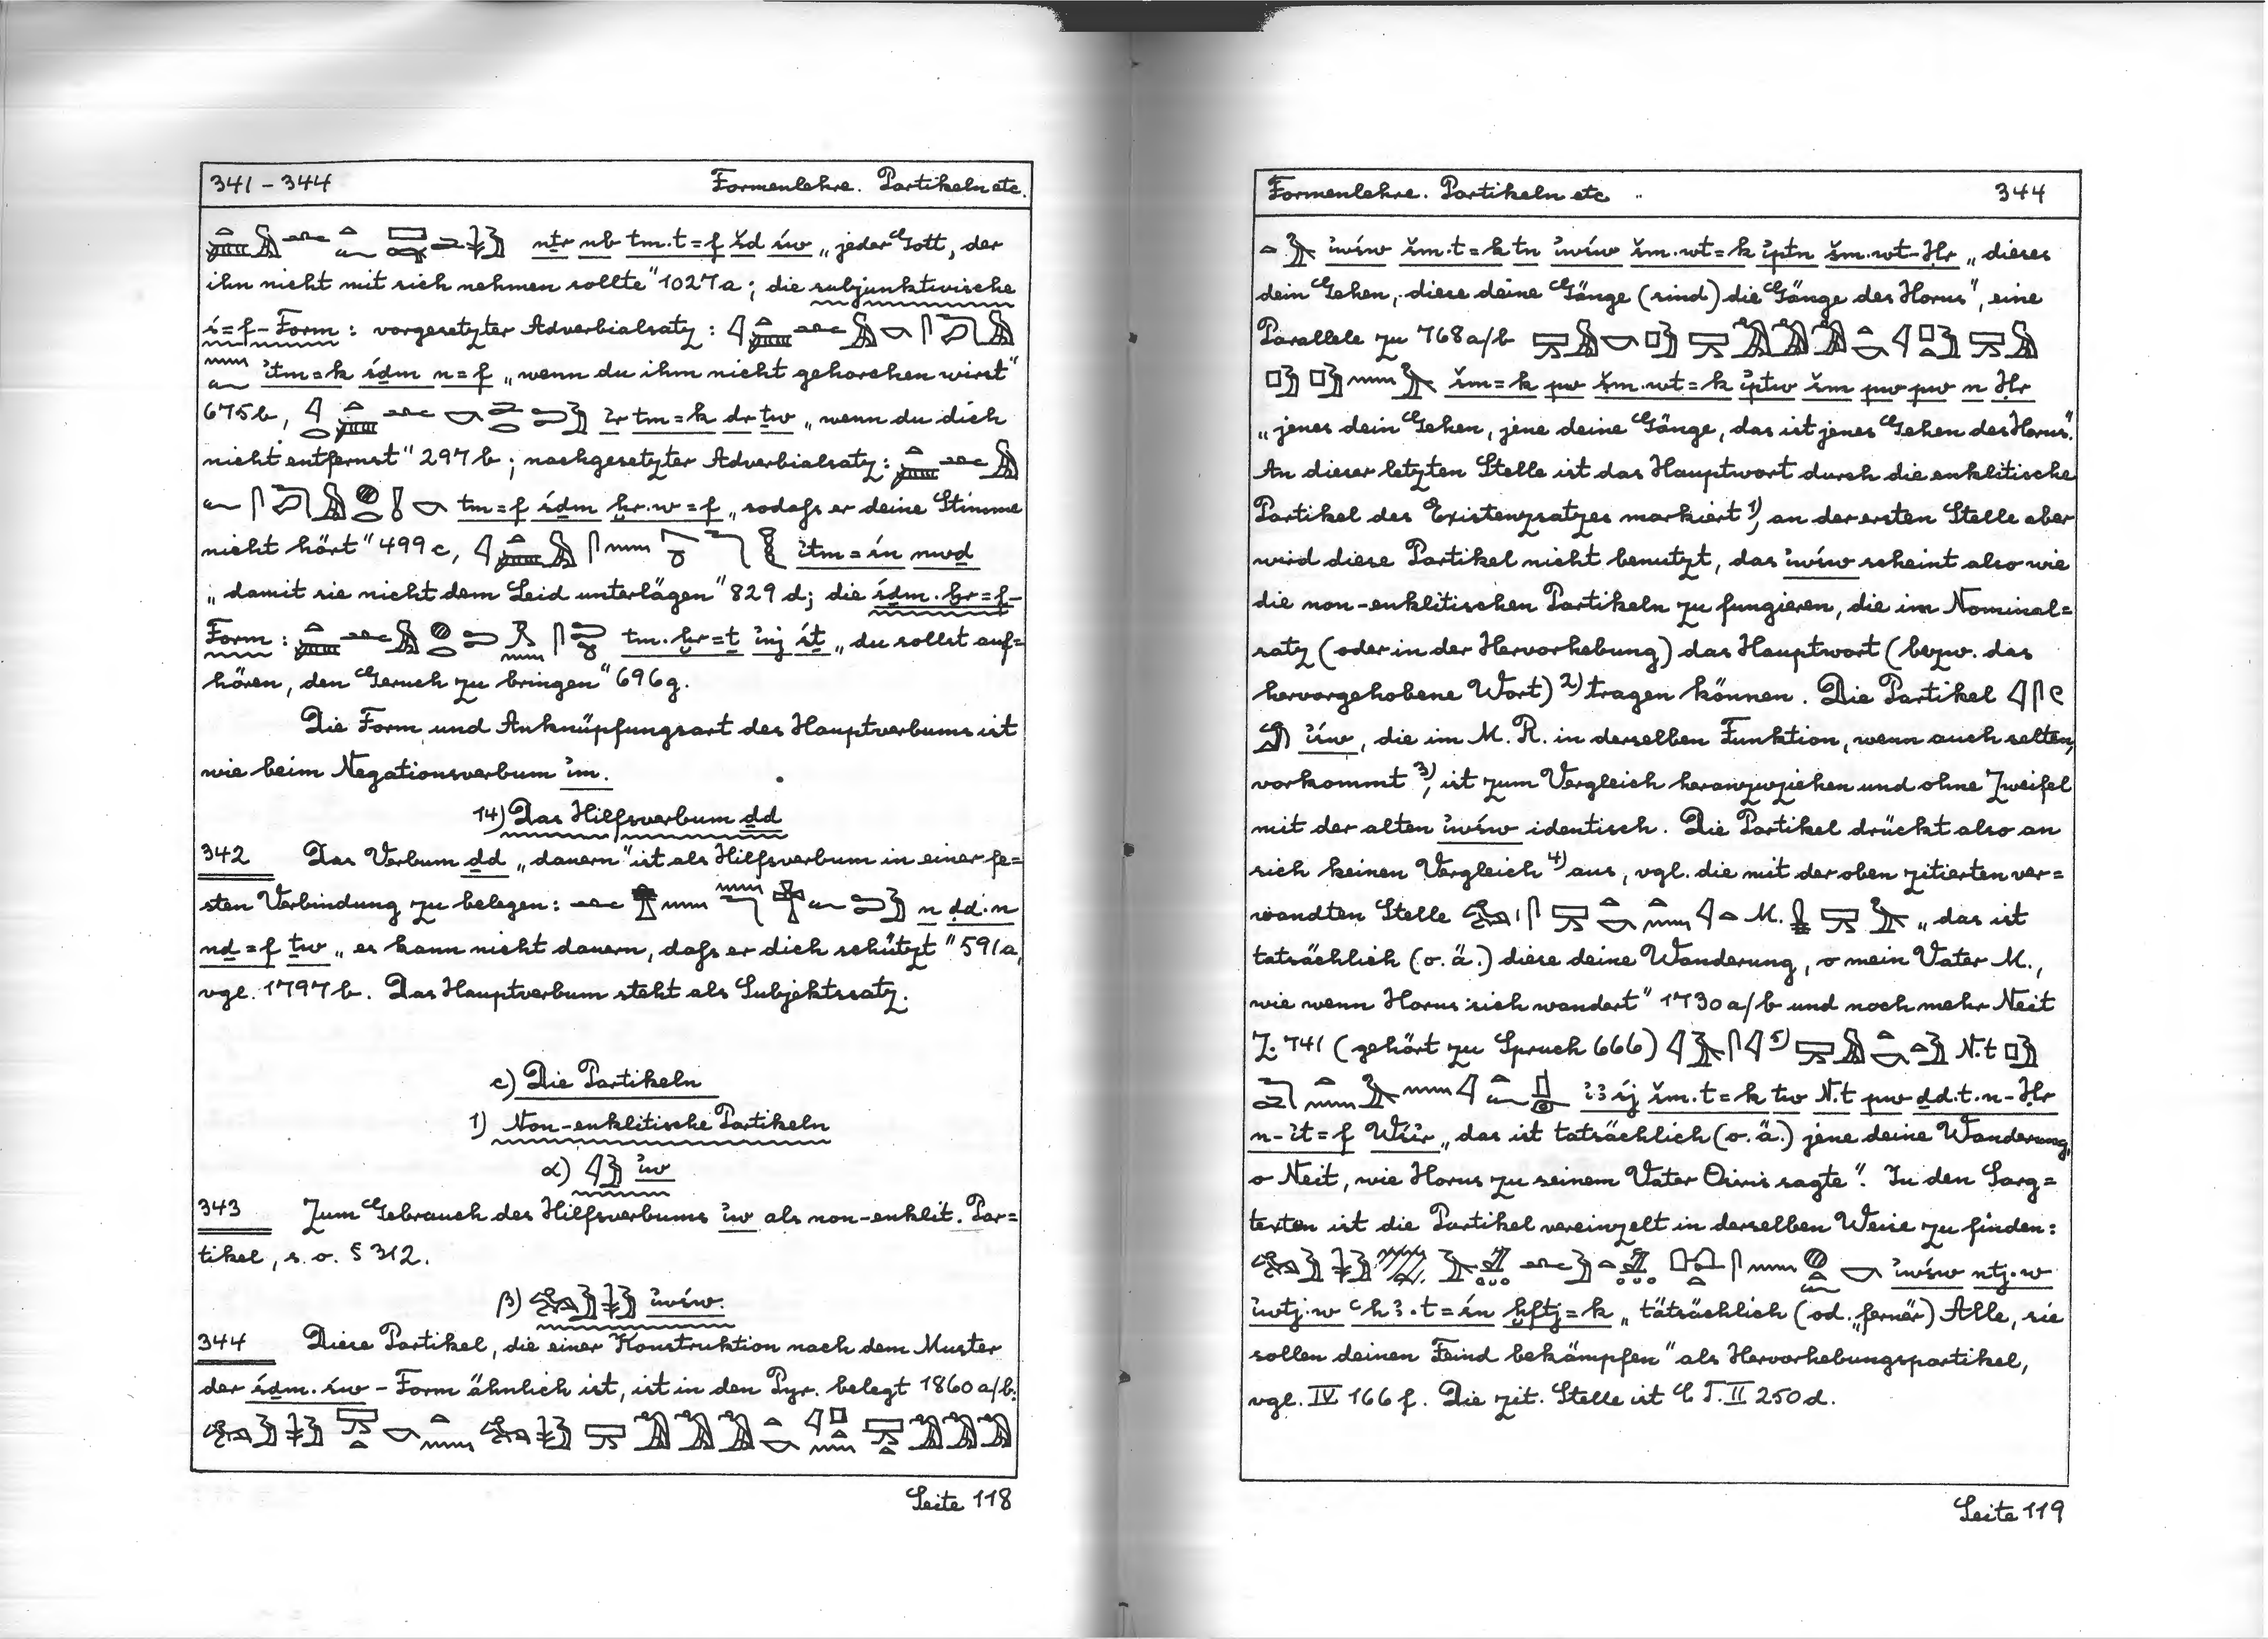 341 – 344 Formenlehre. Partikeln etc.
nṯr nb tm.t=f šd św „jeder Gott, der
ihn nicht mit sich nehmen sollte" 1027a; die subjunktivische
ś=f-Form: vorgesetzter Adverbialsatz:
ı͗tm=k śḏm n=f „wenn du ihm nicht gehorchen wirst"
675b, ı͗r tm=k dr ṯw „wenn du dich
nicht entfernst" 297b; nachgesetzter Adverbialsatz:
tm=f śḏm ḫr.w=f „sodaß er deine Stimme
nicht hört" 499c, ı͗tm=śn nwḏ
„damit sie nicht dem Leid unterlägen" 829d; die śḏm.ḫr=f-
Form: tm.ḫr=ṯ ı͗nj śṯ „du sollst auf=
hören, den Geruch zu bringen" 696g.
Die Form und Anknüpfungsart des Hauptverbums ist
wie beim Negationsverbum ı͗m.
14) Das Hilfsverbum ḏd
342 Das Verbum ḏd „dauern" ist als Hilfsverbum in einer fe=
sten Verbindung zu belegen: n ḏd.n
nḏ=f ṯw „es kann nicht dauern, daß er dich schützt" 591a,
vgl. 1797b. Das Hauptverbum steht als Subjektssatz.
c) Die Partikeln
1) Non-enklitische Partikeln
α) ı͗w
343 Zum Gebrauch des Hilfsverbums ı͗w als non-enklit. Par=
tikel, s. o. § 312.
β) ı͗wśw.
344 Diese Partikel, die einer Konstruktion nach dem Muster
der śḏm.św-Form ähnlich ist, ist in den Pyr. belegt 1860a/b:
Seite 118
Formenlehre. Partikeln etc 344
ı͗wśw šm.t=k tn ı͗wśw šm.wt=k ı͗ptn šm.wt-Ḥr „dieses
dein Gehen, diese deine Gänge (sind) die Gänge des Horus", eine
Parallele zu 768a/b
šm=k pw šm.wt=k ı͗ptw šm pw pw n Ḥr
„jenes dein Gehen, jene deine Gänge, das ist jenes Gehen des Horus".
An dieser letzten Stelle ist das Hauptwort durch die enklitische
Partikel des Existenzsatzes markiert 1), an der ersten Stelle aber
wird diese Partikel nicht benutzt, das ı͗wśw scheint also wie
die non-enklitischen Partikeln zu fungieren, die im Nominal=
satz (oder in der Hervorhebung) das Hauptwort (bezw. das
hervorgehobene Wort) 2) tragen können. Die Partikel
ı͗św, die im M. R. in derselben Funktion, wenn auch selten,
vorkommt 3), ist zum Vergleich heranzuziehen und ohne Zweifel
mit der alten ı͗wśw identisch. Die Partikel drückt also an
sich keinen Vergleich 4) aus, vgl. die mit der oben zitierten ver=
wandten Stelle M. „das ist
tatsächlich (o. ä.) diese deine Wanderung, o mein Vater M.,
wie wenn Horus sich wandert" 1730a/b und noch mehr Neit
Z. 741 (gehört zu Spruch 666) 5) N.t
ı͗ꜣ śj šm.t=k tw N.t pw ḏd.t.n-Ḥr
n-ı͗t=f Wśı͗r „das ist tatsächlich (o. ä.) jene deine Wanderung,
o Neit, wie Horus zu seinem Vater Osiris sagte". In den Sarg=
texten ist die Partikel vereinzelt in derselben Weise zu finden:
ı͗wśw ntj.w
ı͗wtj.w ꜥḥꜣ.t=śn ḫftj=k „tätsächlich (od. „ferner) Alle, sie
sollen deinen Feind bekämpfen" als Hervorhebungspartikel,
vgl. IV 166f. Die zit. Stelle ist C T. II 250d.
Seite 119